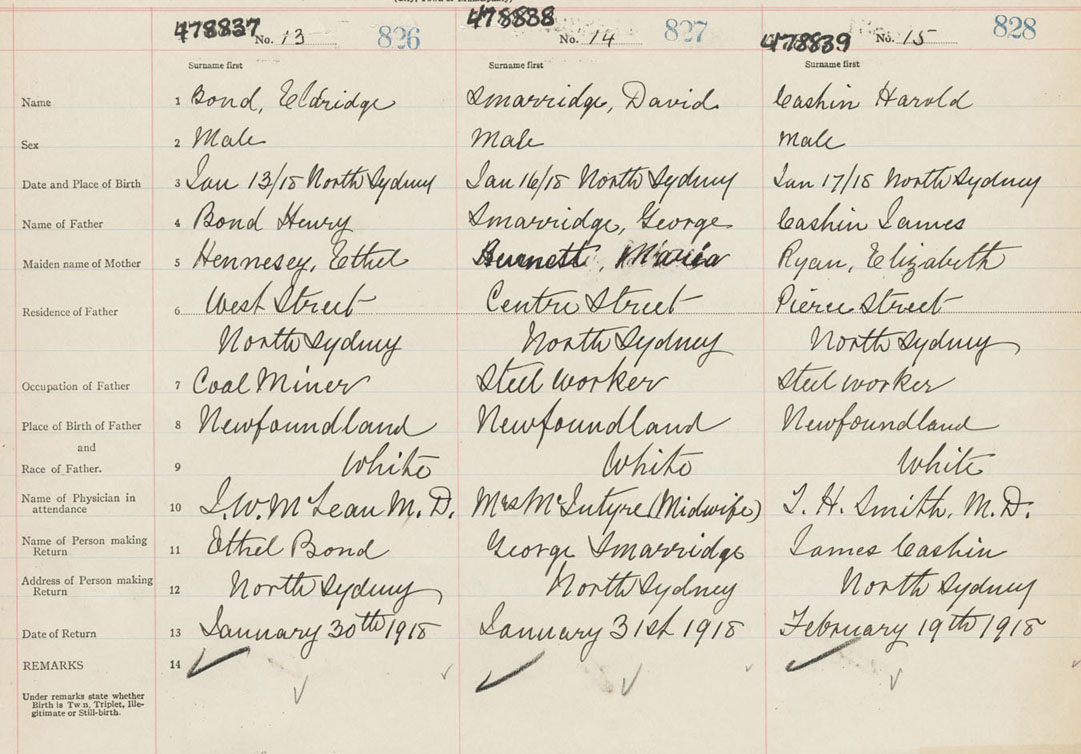 478837 No. 13 826
478838 No. 14 827
478839 No. 15 828
Surname first Surname first Surname first
Name 1 Bond, Eldridge Smarridge, David Cashin Harold
Sex 2 Male Male Male
Date and Place of Birth 3 Jan 13/18 North Sydney Jan 16/18 North Sydney Jan 17/18 North Sydney
Name of Father 4 Bond Henry Smarridge, George Cashin James
Maiden name of Mother 5 Hennesey, Ethel Burnett, Maria Ryan, Elizabeth
Residence of Father 6 West Street Centre Street Pierce Street
North Sydney North Sydney North Sydney
Occupation of Father 7 Coal Miner Steel worker Steel worker
Place of Birth of Father 8 Newfoundland Newfoundland Newfoundland
and
Race of Father. 9 White White White
Name of Physician in
attendance 10 J. W. McLean M. D. Mrs McIntyre (Midwife) T. H. Smith, M. D.
Name of Person making
Return 11 Ethel Bond George Smarridge James Cashin
Address of Person making
Return 12 North Sydney North Sydney North Sydney
Date of Return 13 January 30th 1918 January 31st 1918 February 19th 1918
REMARKS 14
Under remarks state whether
Birth is Twin, Triplet, Ille-
gitimate or Still-birth.